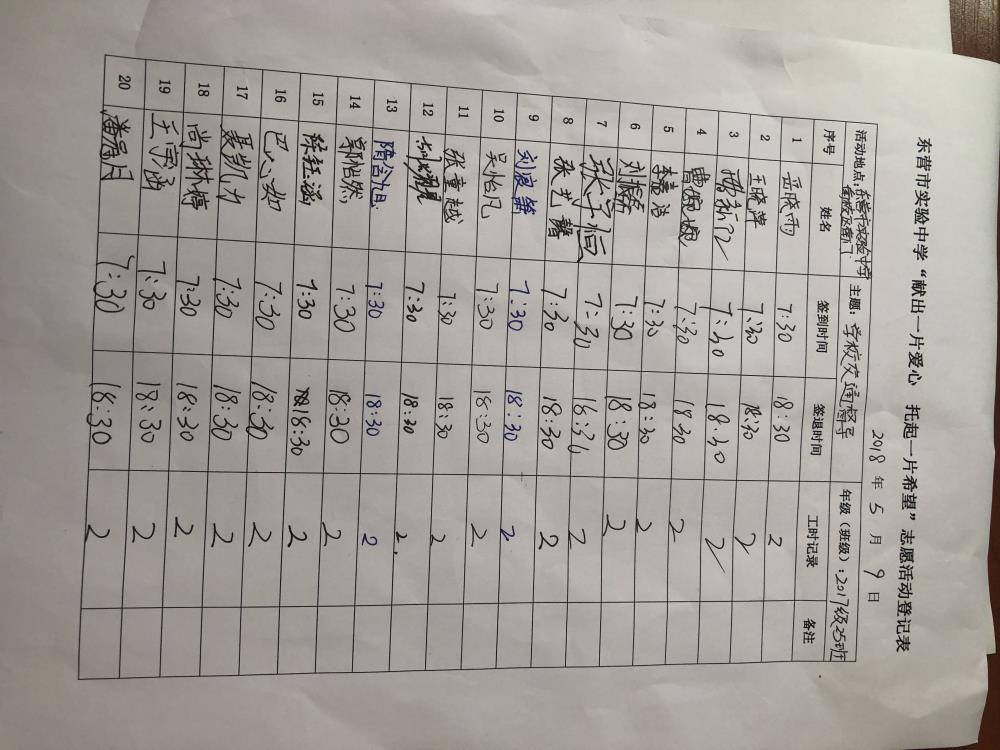 东营市实验中学“献出一片爱心 托起一片希望”志愿活动登记表
2018 年 5 月 9 日
活动地点：东营市实验中学 主题：学校交通督导 年级（班级）：2017级25班
序号 姓名 签到时间 签退时间 工时记录 备注
1 岳晓雨 7:30 18:30 2
2 王晓萍 7:30 18:30 2
3 7:30 18:30 2
4 7:30 18:30 2
5 李嘉浩 7:30 18:30 2
6 刘振 7:30 18:30 2
7 张子恒 7:30 18:30 2
8 张艺馨 7:30 18:30 2
9 刘 7:30 18:30 2
10 吴怡凡 7:30 18:30 2
11 张童越 7:30 18:30 2
12 7:30 18:30 2.
13 隋合旭 7:30 18:30 2
14 郭怡然 7:30 18:30 2
15 陈钰涵 7:30 18:30 2
16 巴心如 7:30 18:30 2
17 聂凯力 7:30 18:30 2
18 尚琳婷 7:30 18:30 2
19 王字涵 7:30 18:30 2
20 7:30 18:30 2